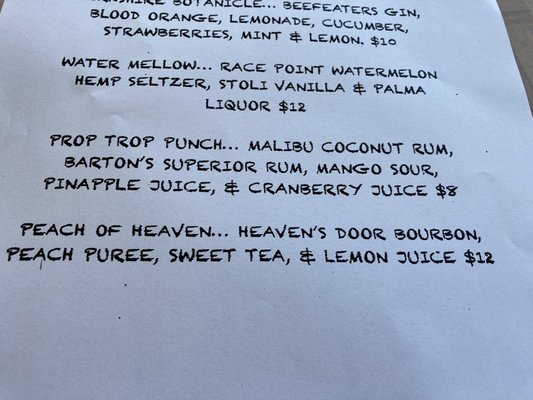 BOTANICLE... BEEFEATERS GIN,
BLOOD ORANGE, LEMONADE, CUCUMBER,
STRAWBERRIES, MINT & LEMON. $10
WATER MELLOW... RACE POINT WATERMELON
HEMP SELTZER, STOLI VANILLA & PALMA
LIQUOR $12
PROP TROP PUNCH... MALIBU COCONUT RUM,
BARTON'S SUPERIOR RUM, MANGO SOUR,
PINAPPLE JUICE, & CRANBERRY JUICE $8
PEACH OF HEAVEN... HEAVEN'S DOOR BOURBON,
PEACH PUREE, SWEET TEA, & LEMON JUICE $12